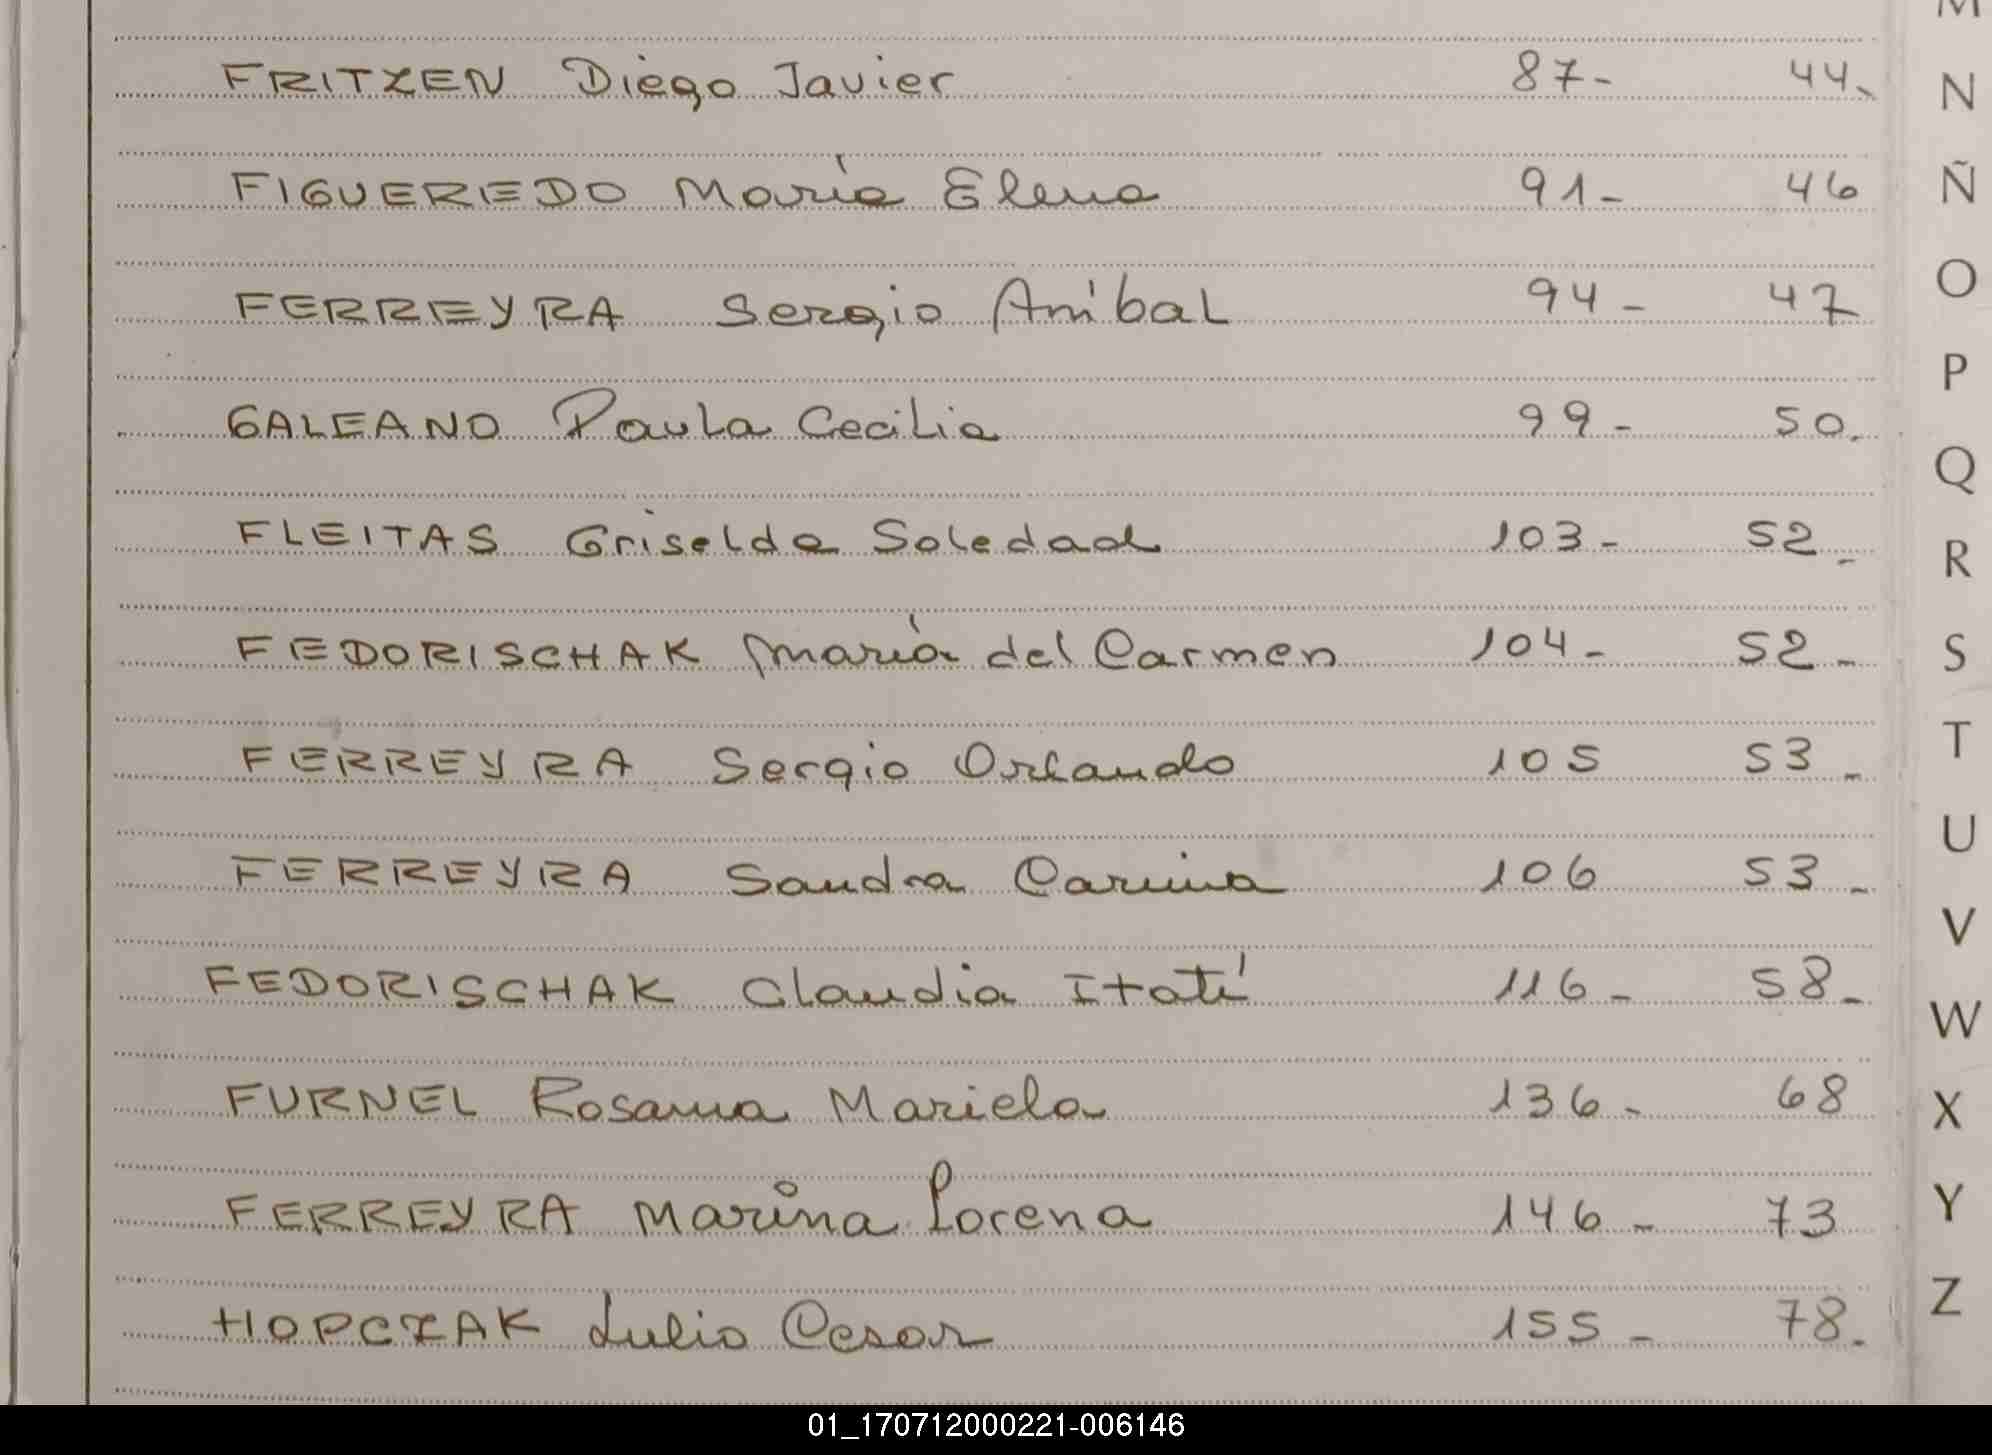 M
FRITZEN Diego Javier 87- 44-
N
FIGUEREDO María Elena 91- 46
Ñ
FERREYRA Sergio Aníbal 94- 47
O
P
GALEANO Paula Cecilia 99- 50.
Q
FLEITAS Griselda Soledad 103- 52-
R
FEDORISCHAK María del Carmen 104- 52-
S
FERREYRA Sergio Orlando 105 53-
T
U
FERREYRA Sandra Carina 106 53-
V
FEDORISCHAK Claudia Itatí 116- 58-
W
FURNEL Rosanna Mariela 136- 68
X
FERREYRA Marina Lorena 146- 73
Y
HOPCZAK Julio Cesar 155- 78-
Z
01_170712000221-006146